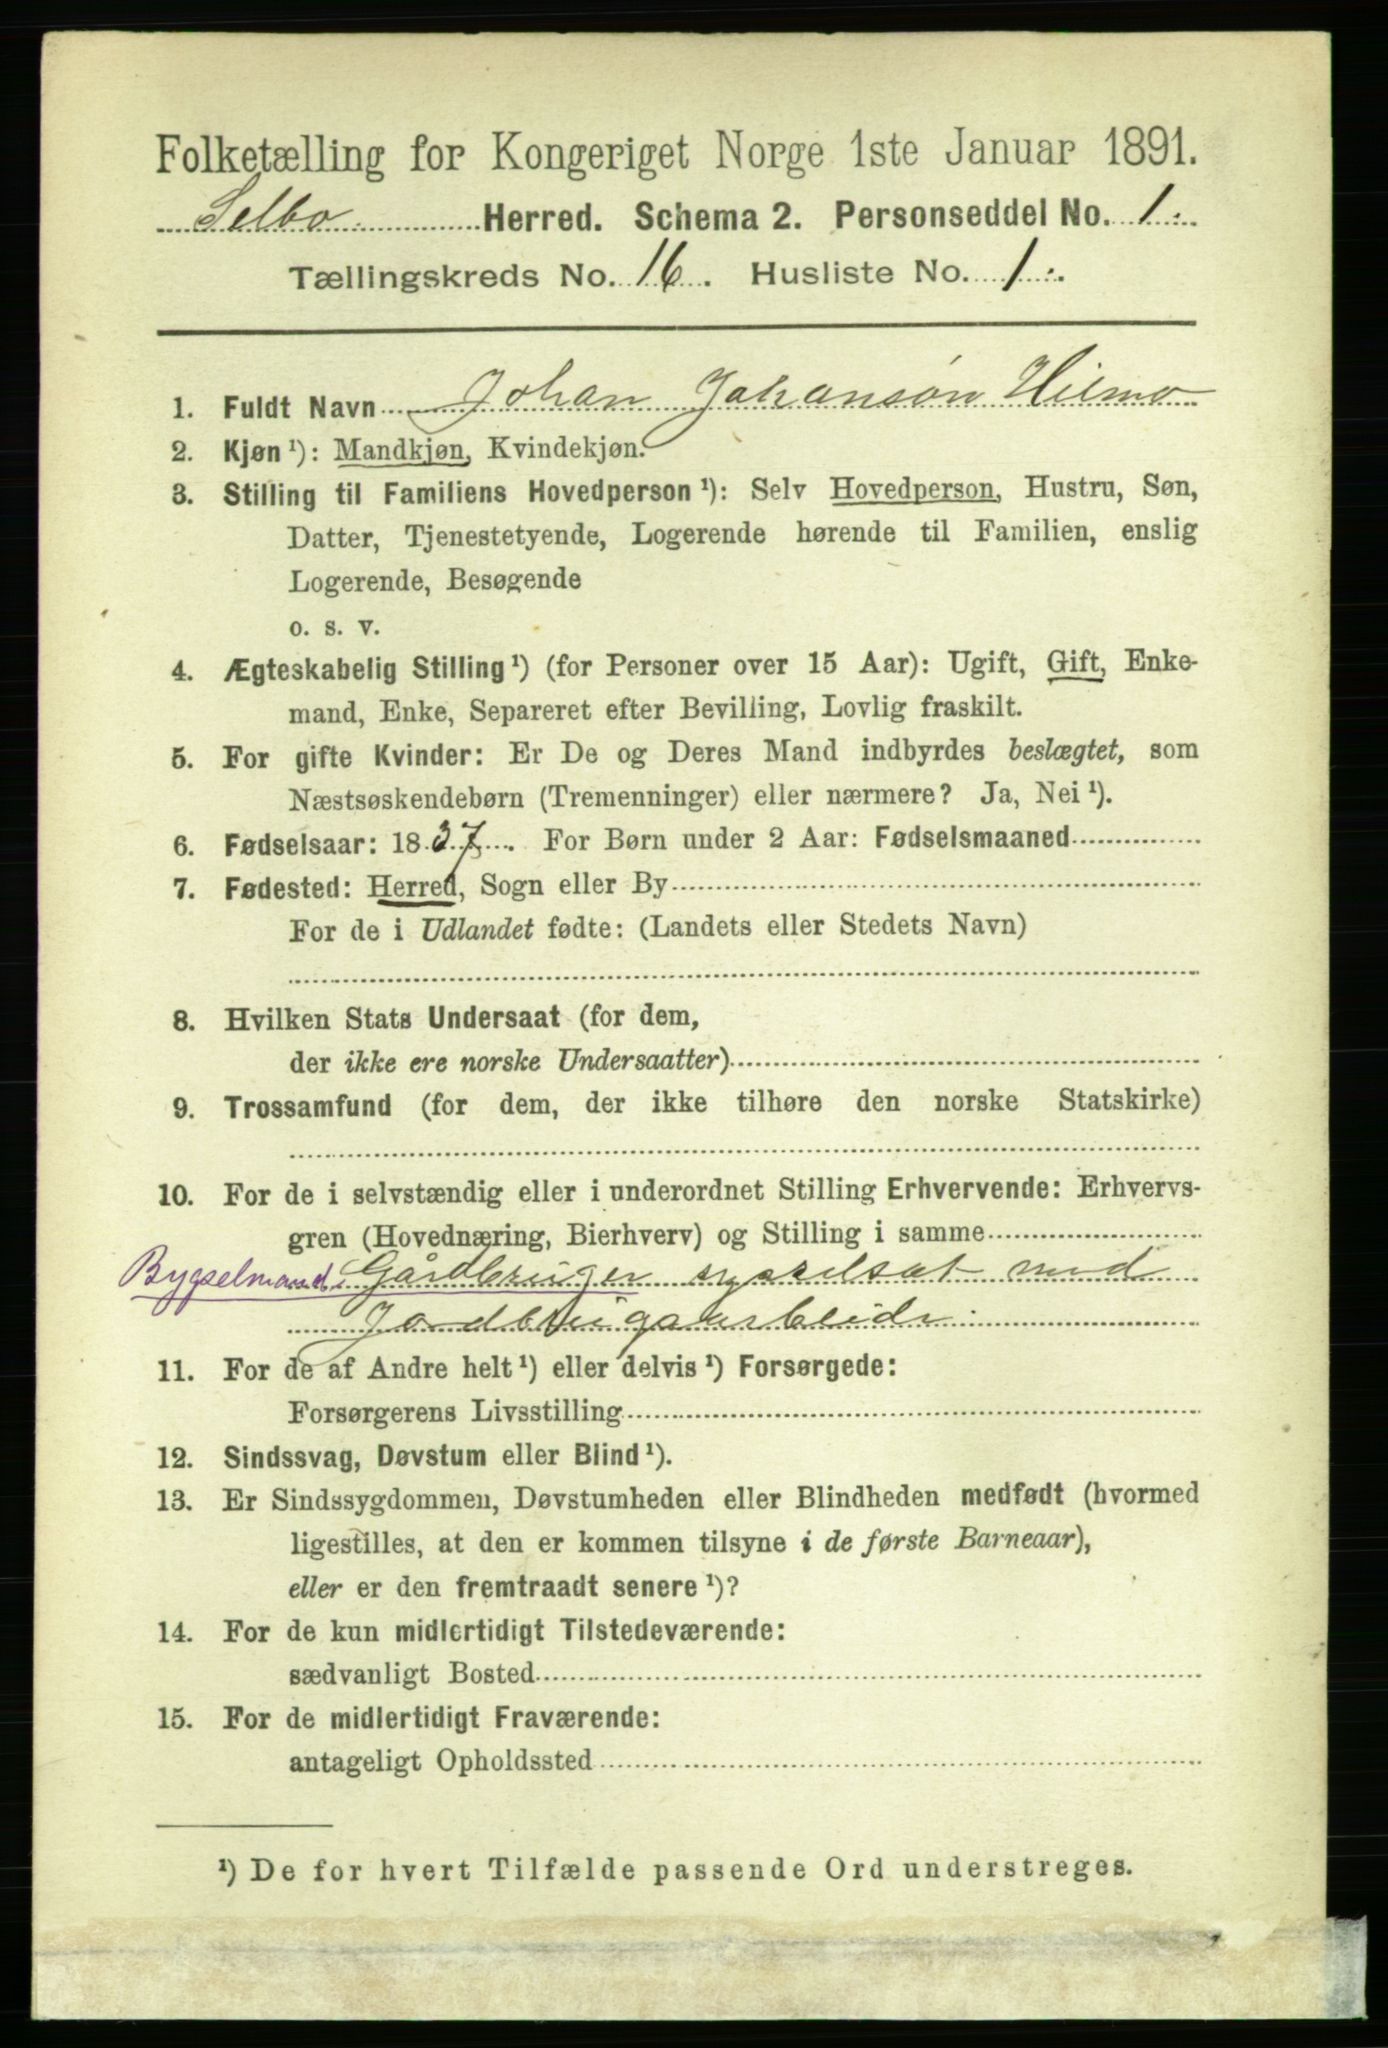 Folketælling for Kongeriget Norge 1ste Januar 1891.
Selbo Herred. Schema 2. Personseddel No. 1.
Tællingskreds No. 16. Husliste No. 1.
1. Fuldt Navn Johan Johansøn Hilmo
2. Kjøn ¹): Mandkjøn, Kvindekjøn.
3. Stilling til Familiens Hovedperson ¹): Selv Hovedperson, Hustru, Søn,
Datter, Tjenestetyende, Logerende hørende til Familien, enslig
Logerende, Besøgende
o. s. v.
4. Ægteskabelig Stilling ¹) (for Personer over 15 Aar): Ugift, Gift, Enke-
mand, Enke, Separeret efter Bevilling, Lovlig fraskilt.
5. For gifte Kvinder: Er De og Deres Mand indbyrdes beslægtet, som
Næstsøskendebørn (Tremenninger) eller nærmere? Ja, Nei ¹).
6. Fødselsaar: 1837. For Børn under 2 Aar: Fødselsmaaned
7. Fødested: Herred, Sogn eller By
For de i Udlandet fødte: (Landets eller Stedets Navn)
8. Hvilken Stats Undersaat (for dem,
der ikke ere norske Undersaatter)
9. Trossamfund (for dem, der ikke tilhøre den norske Statskirke)
10. For de i selvstændig eller i underordnet Stilling Erhvervende: Erhvervs-
gren (Hovednæring, Bierhverv) og Stilling i samme
Bygselmand. Gårdbruger sysselsat med
Jordbrugsarbeide.
11. For de af Andre helt ¹) eller delvis ¹) Forsørgede:
Forsørgerens Livsstilling
12. Sindssvag, Døvstum eller Blind ¹).
13. Er Sindssygdommen, Døvstumheden eller Blindheden medfødt (hvormed
ligestilles, at den er kommen tilsyne i de første Barneaar),
eller er den fremtraadt senere ¹)?
14. For de kun midlertidigt Tilstedeværende:
sædvanligt Bosted
15. For de midlertidigt Fraværende:
antageligt Opholdssted
¹) De for hvert Tilfælde passende Ord understreges.